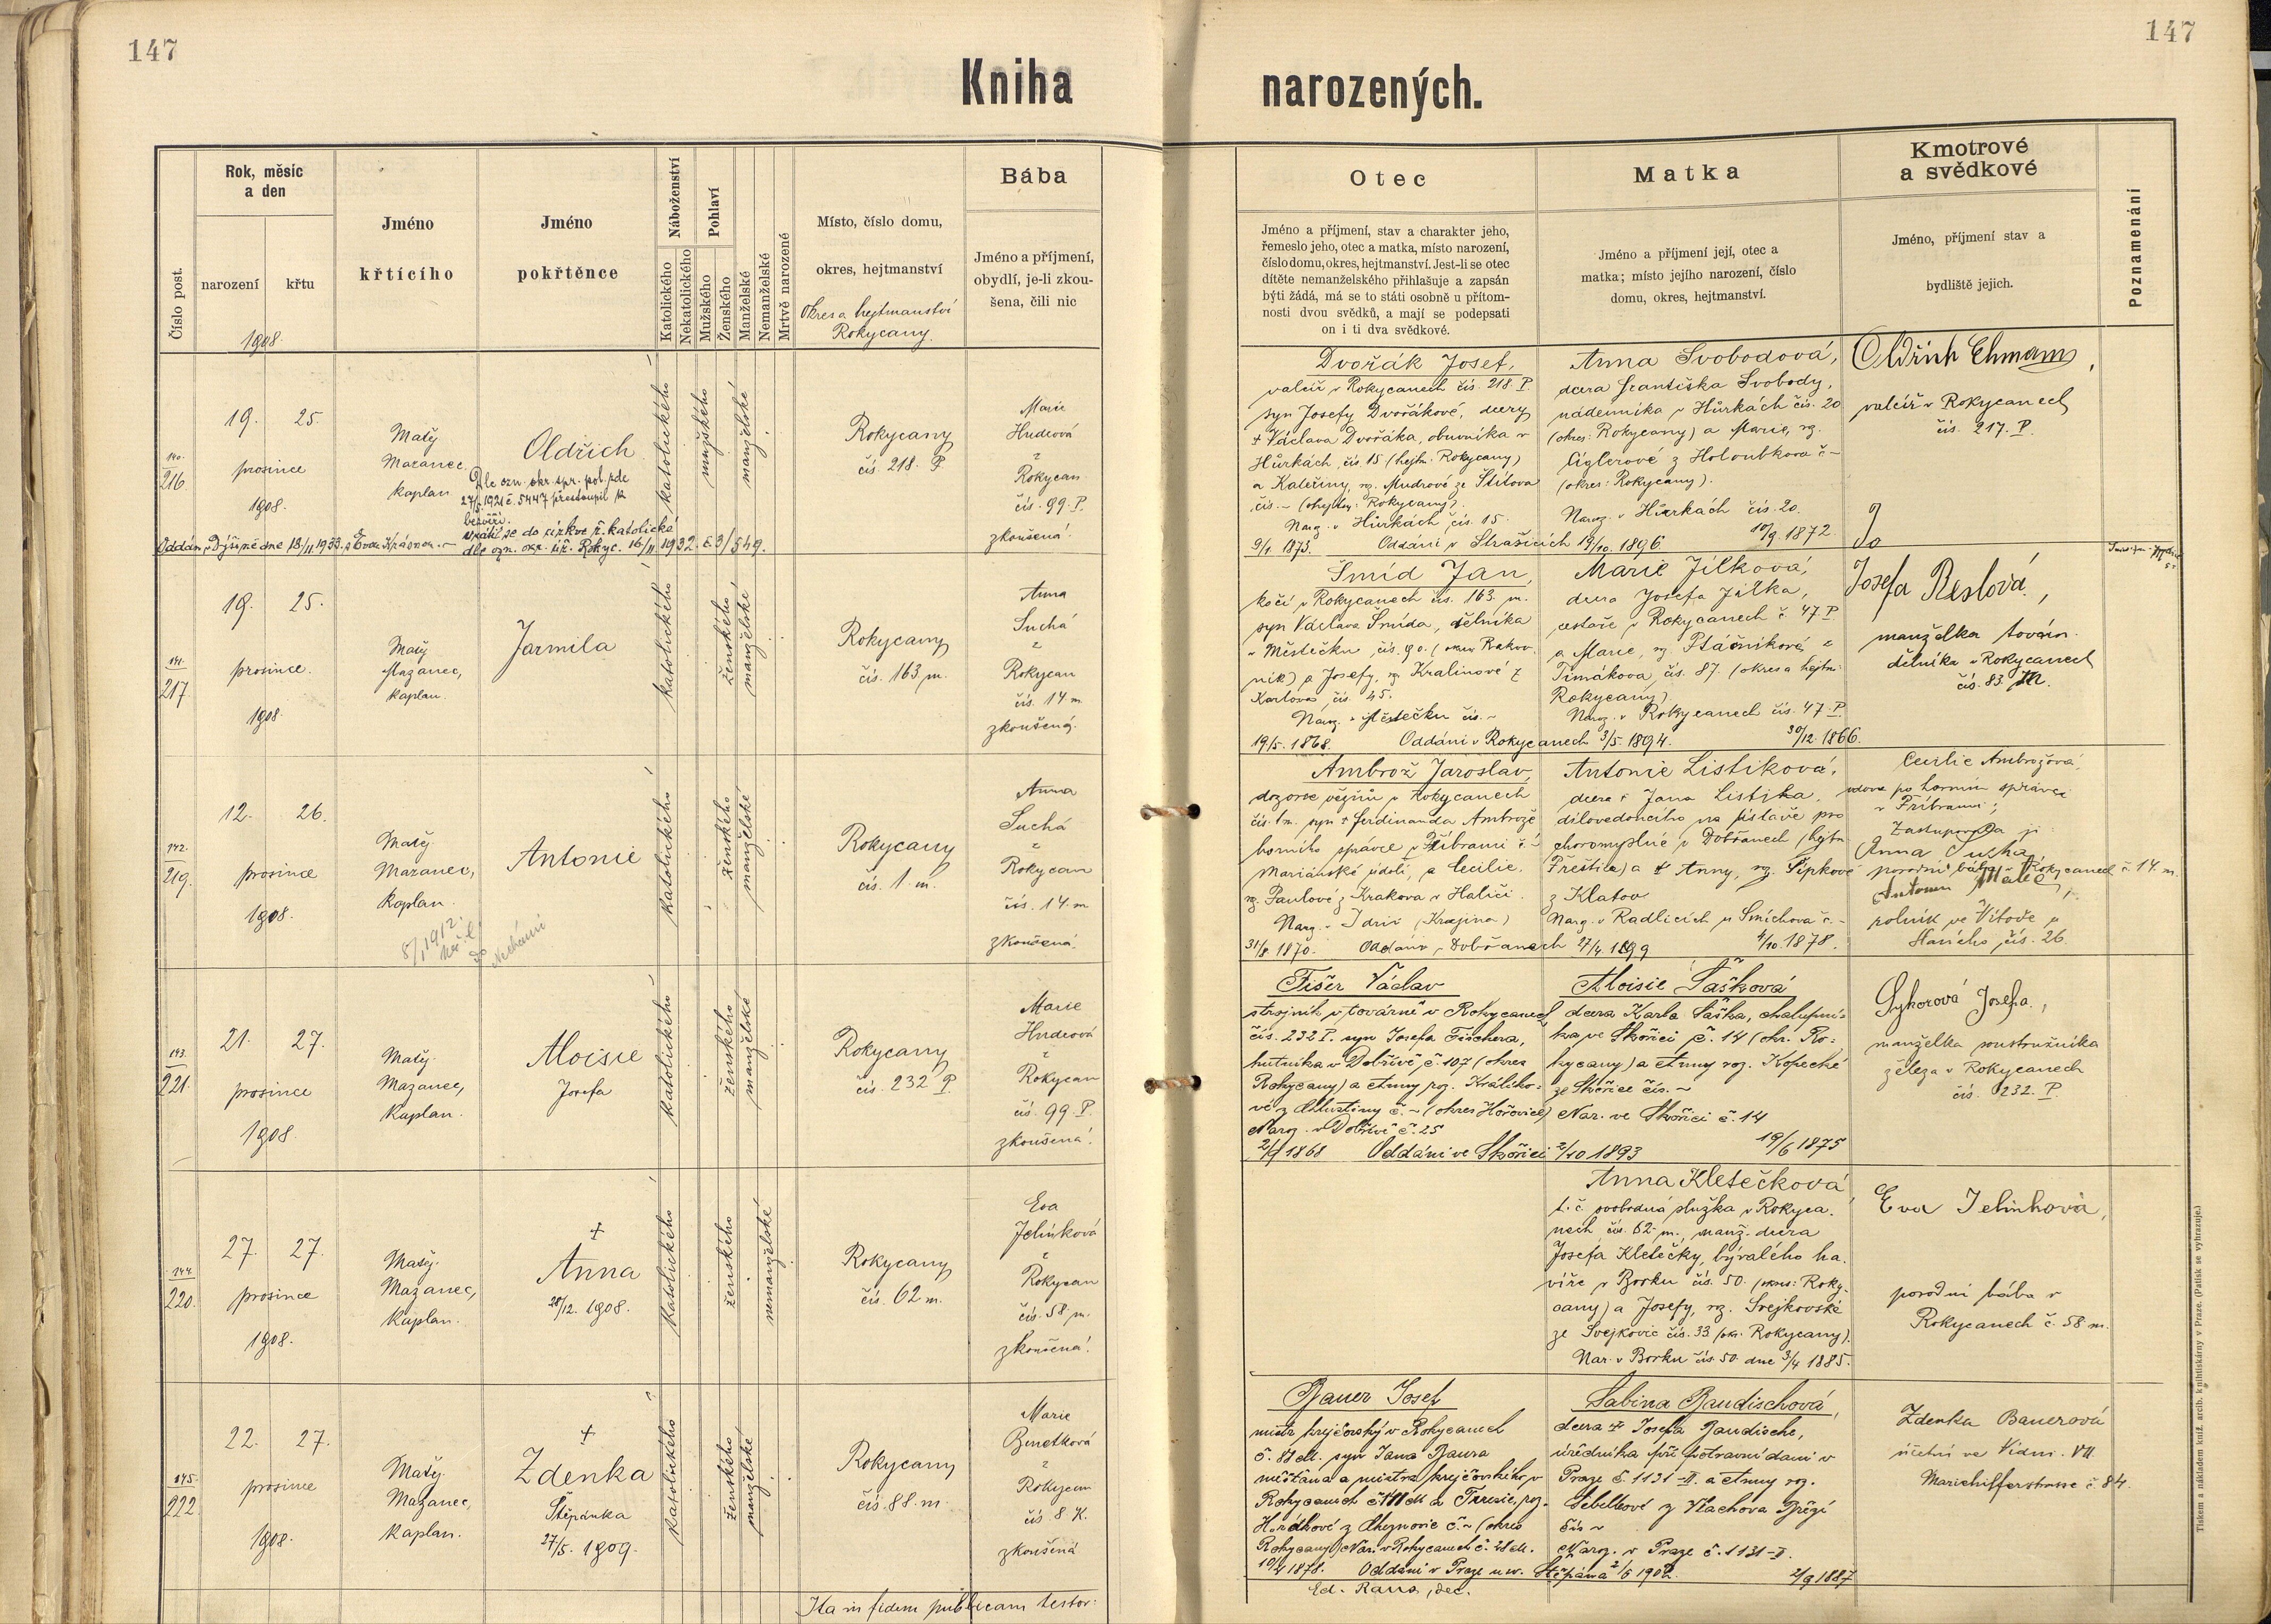 147
147
Kniha narozených.
Číslo post.
Rok, měsíc
a den
narození
křtu
1908.
Jméno
křtícího
Jméno
pokřtěnce
Náboženství
Katolického
Nekatolického
Pohlaví
Mužského
Ženského
Manželské
Nemanželské
Mrtvě narozené
Místo, číslo domu,
okres, hejtmanství
Okres a hejtmanství
Rokycany.
Bába
Jméno a příjmení,
obydlí, je-li zkou-
šena, čili nic
Otec
Jméno a příjmení, stav a charakter jeho,
řemeslo jeho, otec a matka, místo narození,
číslo domu, okres, hejtmanství. Jest-li se otec
dítěte nemanželského přihlašuje a zapsán
býti žádá, má se to státi osobně u přítom-
nosti dvou svědků, a mají se podepsati
on i ti dva svědkové.
Matka
Jméno a příjmení její, otec a
matka; místo jejího narození, číslo
domu, okres, hejtmanství.
Kmotrové
a svědkové
Jméno, příjmení stav a
bydliště jejich.
Poznamenání
140.
216.
19. 25.
prosince
1908.
Matěj
Mazanec,
kaplan
Oldřich
Dle ozn. okr. spr. pol. zde
27/5.1921 č. 5447 přestoupil k
bezvěří.
vrátil se do církve ř. katolické
dle ozn. okr. úř. Rokyc. 16/11 1932. č. 3/549.
katolického
mužského
manželské
Rokycany
čís. 218. P.
Marie
Hudcová
z
Rokycan
čís. 99. P.
zkoušená.
Dvořák Josef,
valcíř v Rokycanech čís. 218. P.
syn Josefy Dvořákové, dcery
+ Václava Dvořáka, obuvníka v
Hůrkách, čís. 15 (hejtm. Rokycany)
a Kateřiny, roz. Mudrové ze Štítova
Naroz. v Hůrkách čís. 15.
9/1. 1873. Oddáni v Strašicích 19/10. 1896.
Anna Svobodová,
dcera Františka Svobody,
nádenníka v Hůrkách čís. 20
(okres: Rokycany) a Marie, roz.
Ciglerové z Holoubkova č –
(okres: Rokycany).
Naroz. v Hůrkách čís. 20.
10/9. 1872.
Oldřich Ehmann,
valcíř v Rokycanech
čís. 217. P.
141.
217.
19. 25.
prosince.
1908.
Matěj
Mazanec,
kaplan.
Jarmila
katolického
ženského
manželské
Rokycany
čís. 163 m.
Anna
Suchá
z
Rokycan
čís. 14 m
zkoušená.
Šmíd Jan,
kočí v Rokycanech čís. 163. m.
syn Václava Šmída, dělníka
v Městečku, čís. 90. (okres Rakov.
ník) a Josefy, roz. Kralinové z
čís. 45.
Naroz. v Městečku čís. –
19/5. 1868. Oddáni v Rokycanech 3/5. 1894.
Marie Jílková,
dcera Josefa Jílka,
cestáře v Rokycanech č. 47 P.
a Marie, roz. Ptáčníkové z
Timákova, čís. 87. (okres a hejtm:
Rokycany)
Naroz. v Rokycanech čís. 47. P.
30/12. 1866.
Josefa Reslová,
manželka továrn.
dělníka v Rokycanech
čís. 83. M.
142.
219.
12. 26.
prosince
1908.
Matěj
Mazanec,
kaplan.
Antonie
katolického
ženského
manželské
Rokycany
čís. 1 m.
Anna
Suchá
z
Rokycan
čís. 14. m
zkoušená.
Ambrož Jaroslav,
dozorce vězňů v Rokycanech
čís. 1 m. syn + Ferdinanda Ambrože
horního správce v Příbrami č. –
Mariánské údolí, a Cecilie,
roz. Paulové z Krakova v Haliči.
Naroz. v Idrii (Krajina)
31/8. 1870. Oddáni v Dobřanech 27/4. 1899
Antonie Listiková,
dcera + Jana Listika,
dílovedoucího na ústavě pro
choromyslné v Dobřanech (hejtm.
Přeštice) a + Anny, roz. Šípkové
z Klatov
Naroz. v Radlicích u Smíchova č. –
4/10. 1878.
Cecilie Ambrožová,
vdova po horním správci
v Příbrami;
Zastupovala ji
Anna Suchá
porodní bába v Rokycanech č. 14. m.
rolník ve Vítově u
Slaného, čís. 26.
143.
221.
21. 27.
prosince
1908.
Matěj
Mazanec,
kaplan.
Aloisie
Josefa
katolického
ženského
manželské
Rokycany
čís. 232 P.
Marie
Hudcová
z
Rokycan
čís. 99. P.
zkoušená.
Fišer Václav
strojník v továrně v Rokycanech
čís. 232 P. syn Josefa Fischera,
hutníka v Dobřívě č. 107 (okres
Rokycany) a Anny roz. Králíko-
vé z Chustiny č. – (okres Hořovice)
Naroz. v Dobřívě č. 25
Oddáni ve Skořici 2/10 1893
Aloisie Šašková
dcera Karla Šaška, chalupní-
ka ve Skořici č. 14 (okr. Ro-
kycany) a Anny roz. Kopecké
ze Skořice čís. –
Nar. ve Skořici č. 14
19/6 1875
Sykorová Josefa,
manželka soustružníka
železa v Rokycanech
čís. 232. P.
144.
220.
27. 27.
prosince
1908.
Matěj
Mazanec,
kaplan.
+
Anna
28/12. 1908.
katolického
ženského
nemanželské
Rokycany
čís. 62 m.
Eva
Jelínková
z
Rokycan
čís. 58 m.
zkoušená.
Anna Kletečková
t. č. svobodná služka v Rokyca.
nech čís. 62. m., manž. dcera
Josefa Kletečky, bývalého ha.
víře v Borku čís. 50. (okres: Roky.
cany) a Josefy, roz. Svejkovské
ze Svejkovic čís. 33. (okr. Rokycany).
Nar. v Borku čís. 50. dne 3/4 1885.
Eva Jelínková,
porodní bába v
Rokycanech č. 58 m.
145.
222.
22. 27.
prosince
1908.
Matěj
Mazanec,
kaplan.
+
Zdenka
Štěpánka
27/5. 1909.
katolického
ženského
manželské
Rokycany
čís. 88. m.
Marie
Benetková
z
Rokycan
čís. 8 K.
zkoušená
Bauer Josef
mistr krejčovský v Rokycanech
syn Jana Baura
měšťana a mistra krejčovského v
Rokycanech a Terezie, roz.
(okres
Rokycany) Nar. v Rokycanech č. 28 M.
10/4 1878. Oddáni v Praze u sv. Štěpána 2/6 1902.
Sabina Baudischová,
dcera + Josefa Baudische,
úředníka při potravní dani v
Praze č. 1131-II. a Anny roz.
čís –
Naroz. v Praze č. 1131-II.
2/9 1887
Zdenka Bauerová
účetní ve Vídni. VII.
Mariahilferstrasse č. 84.
Ita in fidem publicam testor:
Ed. Raus, dec.
Tiskem a nákladem kníž. arcib. knihtiskárny v Praze. (Patisk se vyhrazuje.)